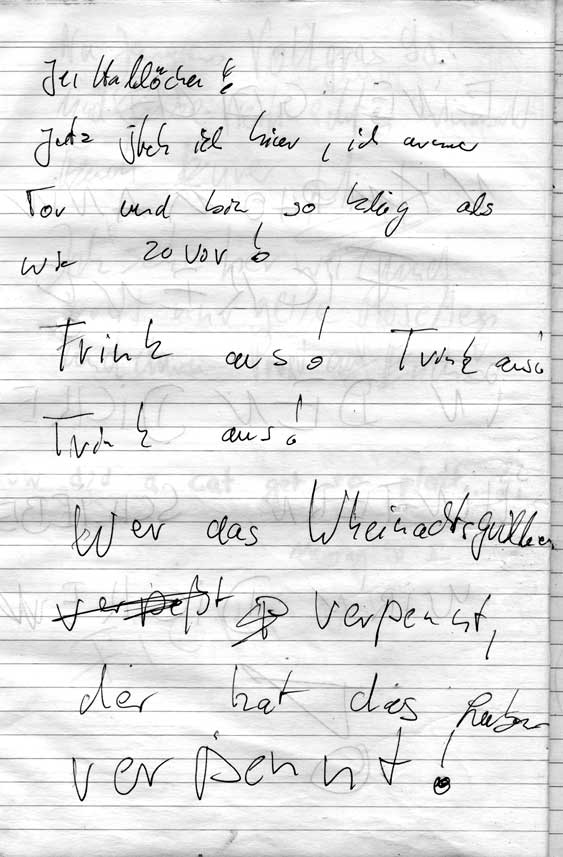 Jetz steh ich hier, ich armer
Tor und bin so klug als
wie 20 vor!
Trink aus! Trink aus!
Trink aus!
Wer das
verpennt,
der hat das Leben
verpennt!